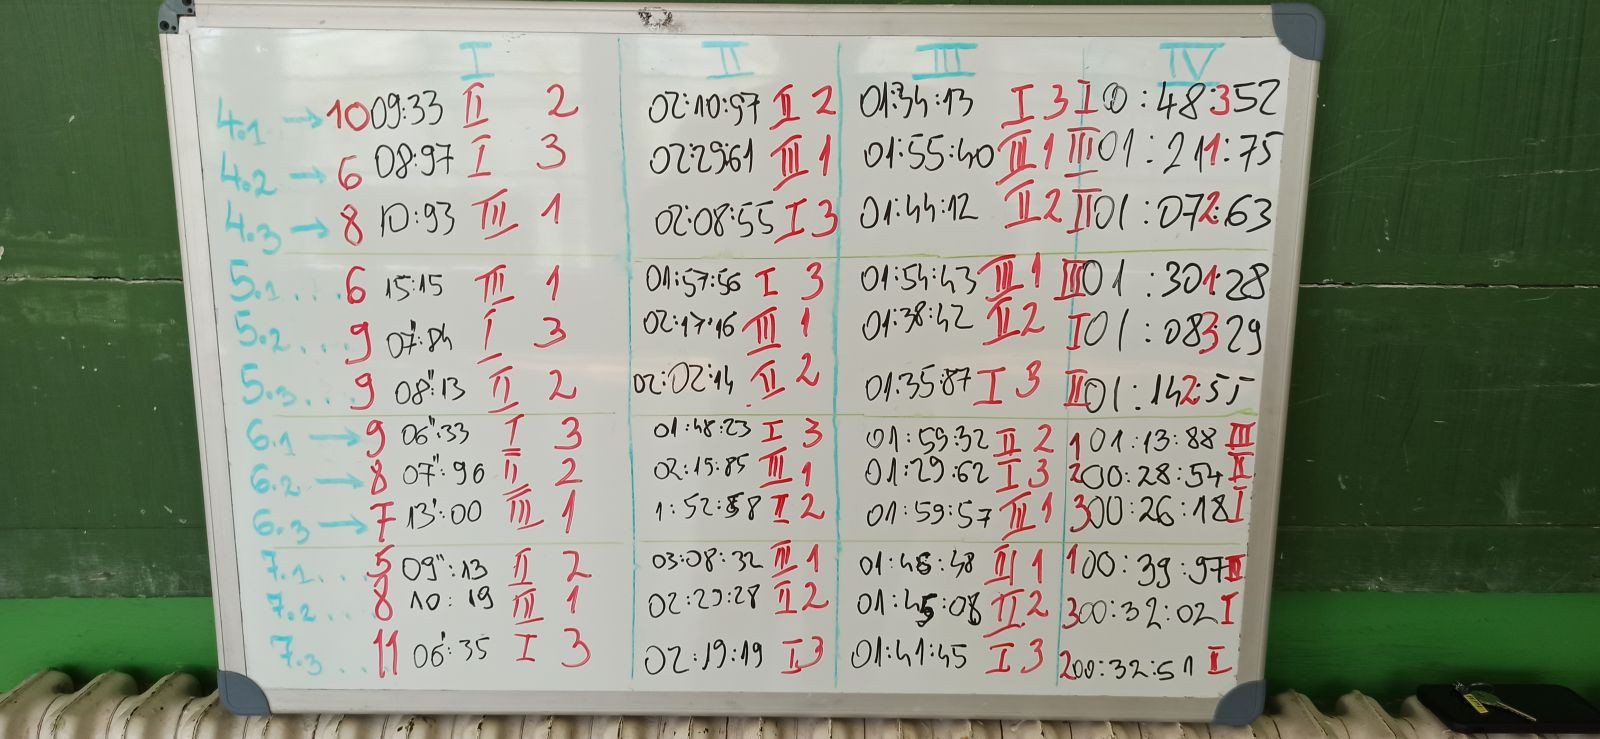 I II III IV
4.1 → 10 09:33 II 2 02:10:97 II 2 01:34:13 I 3 I 0:48:352
4.2 → 6 08:97 I 3 02:29:61 III 1 01:55:40 III 1 III 01:211:75
4.3 → 8 10:93 III 1 02:08:55 I 3 01:44:12 II 2 II 01:072:63
5.1 ... 6 15:15 III 1 01:57:56 I 3 01:54:43 III 1 III 01:301:28
5.2 ... 9 07":84 I 3 02:17:16 III 1 01:38:42 II 2 I 01:083:29
5.3 ... 9 08":13 II 2 02:02:14 II 2 01:35:87 I 3 II 01:142:55
6.1 → 9 06":33 I 3 01:48:23 I 3 01:59:32 II 2 1 01:13:88 III
6.2 → 8 07":96 II 2 02:15:85 III 1 01:29:62 I 3 2 00:28:54 II
6.3 → 7 13":00 III 1 1:52:58 II 2 01:59:57 III 1 3 00:26:18 I
7.1 ... 5 09":13 II 2 03:08:32 III 1 01:48 III 1 1 00:39:97
7.2 ... 8 10:19 III 1 02:29:28 II 2 01:45:08 II 2 3 00:32:02 I
7.3 ... 11 06":35 I 3 02:19:19 I 3 01:41:45 I 3 2 00:32:51